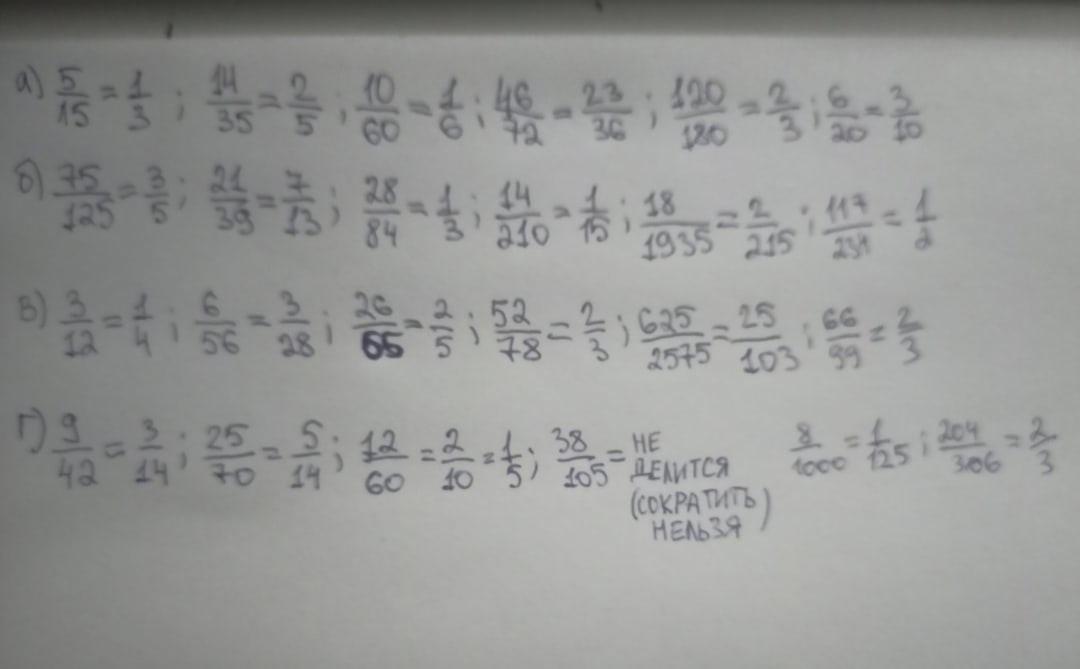 а) 5/15 = 1/3 ; 14/35 = 2/5 ; 10/60 = 1/6 ; 46/72 = 23/36 ; 120/180 = 2/3 ; 6/20 = 3/10
б) 75/125 = 3/5 ; 21/39 = 7/13 ; 28/84 = 1/3 ; 14/210 = 1/15 ; 18/1935 = 2/215 ; 117/234 = 1/2
в) 3/12 = 1/4 ; 6/56 = 3/28 ; 26/65 = 2/5 ; 52/78 = 2/3 ; 625/2575 = 25/103 ; 66/99 = 2/3
г) 9/42 = 3/14 ; 25/70 = 5/14 ; 12/60 = 2/10 = 1/5 ; 38/105 = НЕ 8/1000 = 1/125 ; 204/306 = 2/3
ДЕЛИТСЯ
(СОКРАТИТЬ
НЕЛЬЗЯ)